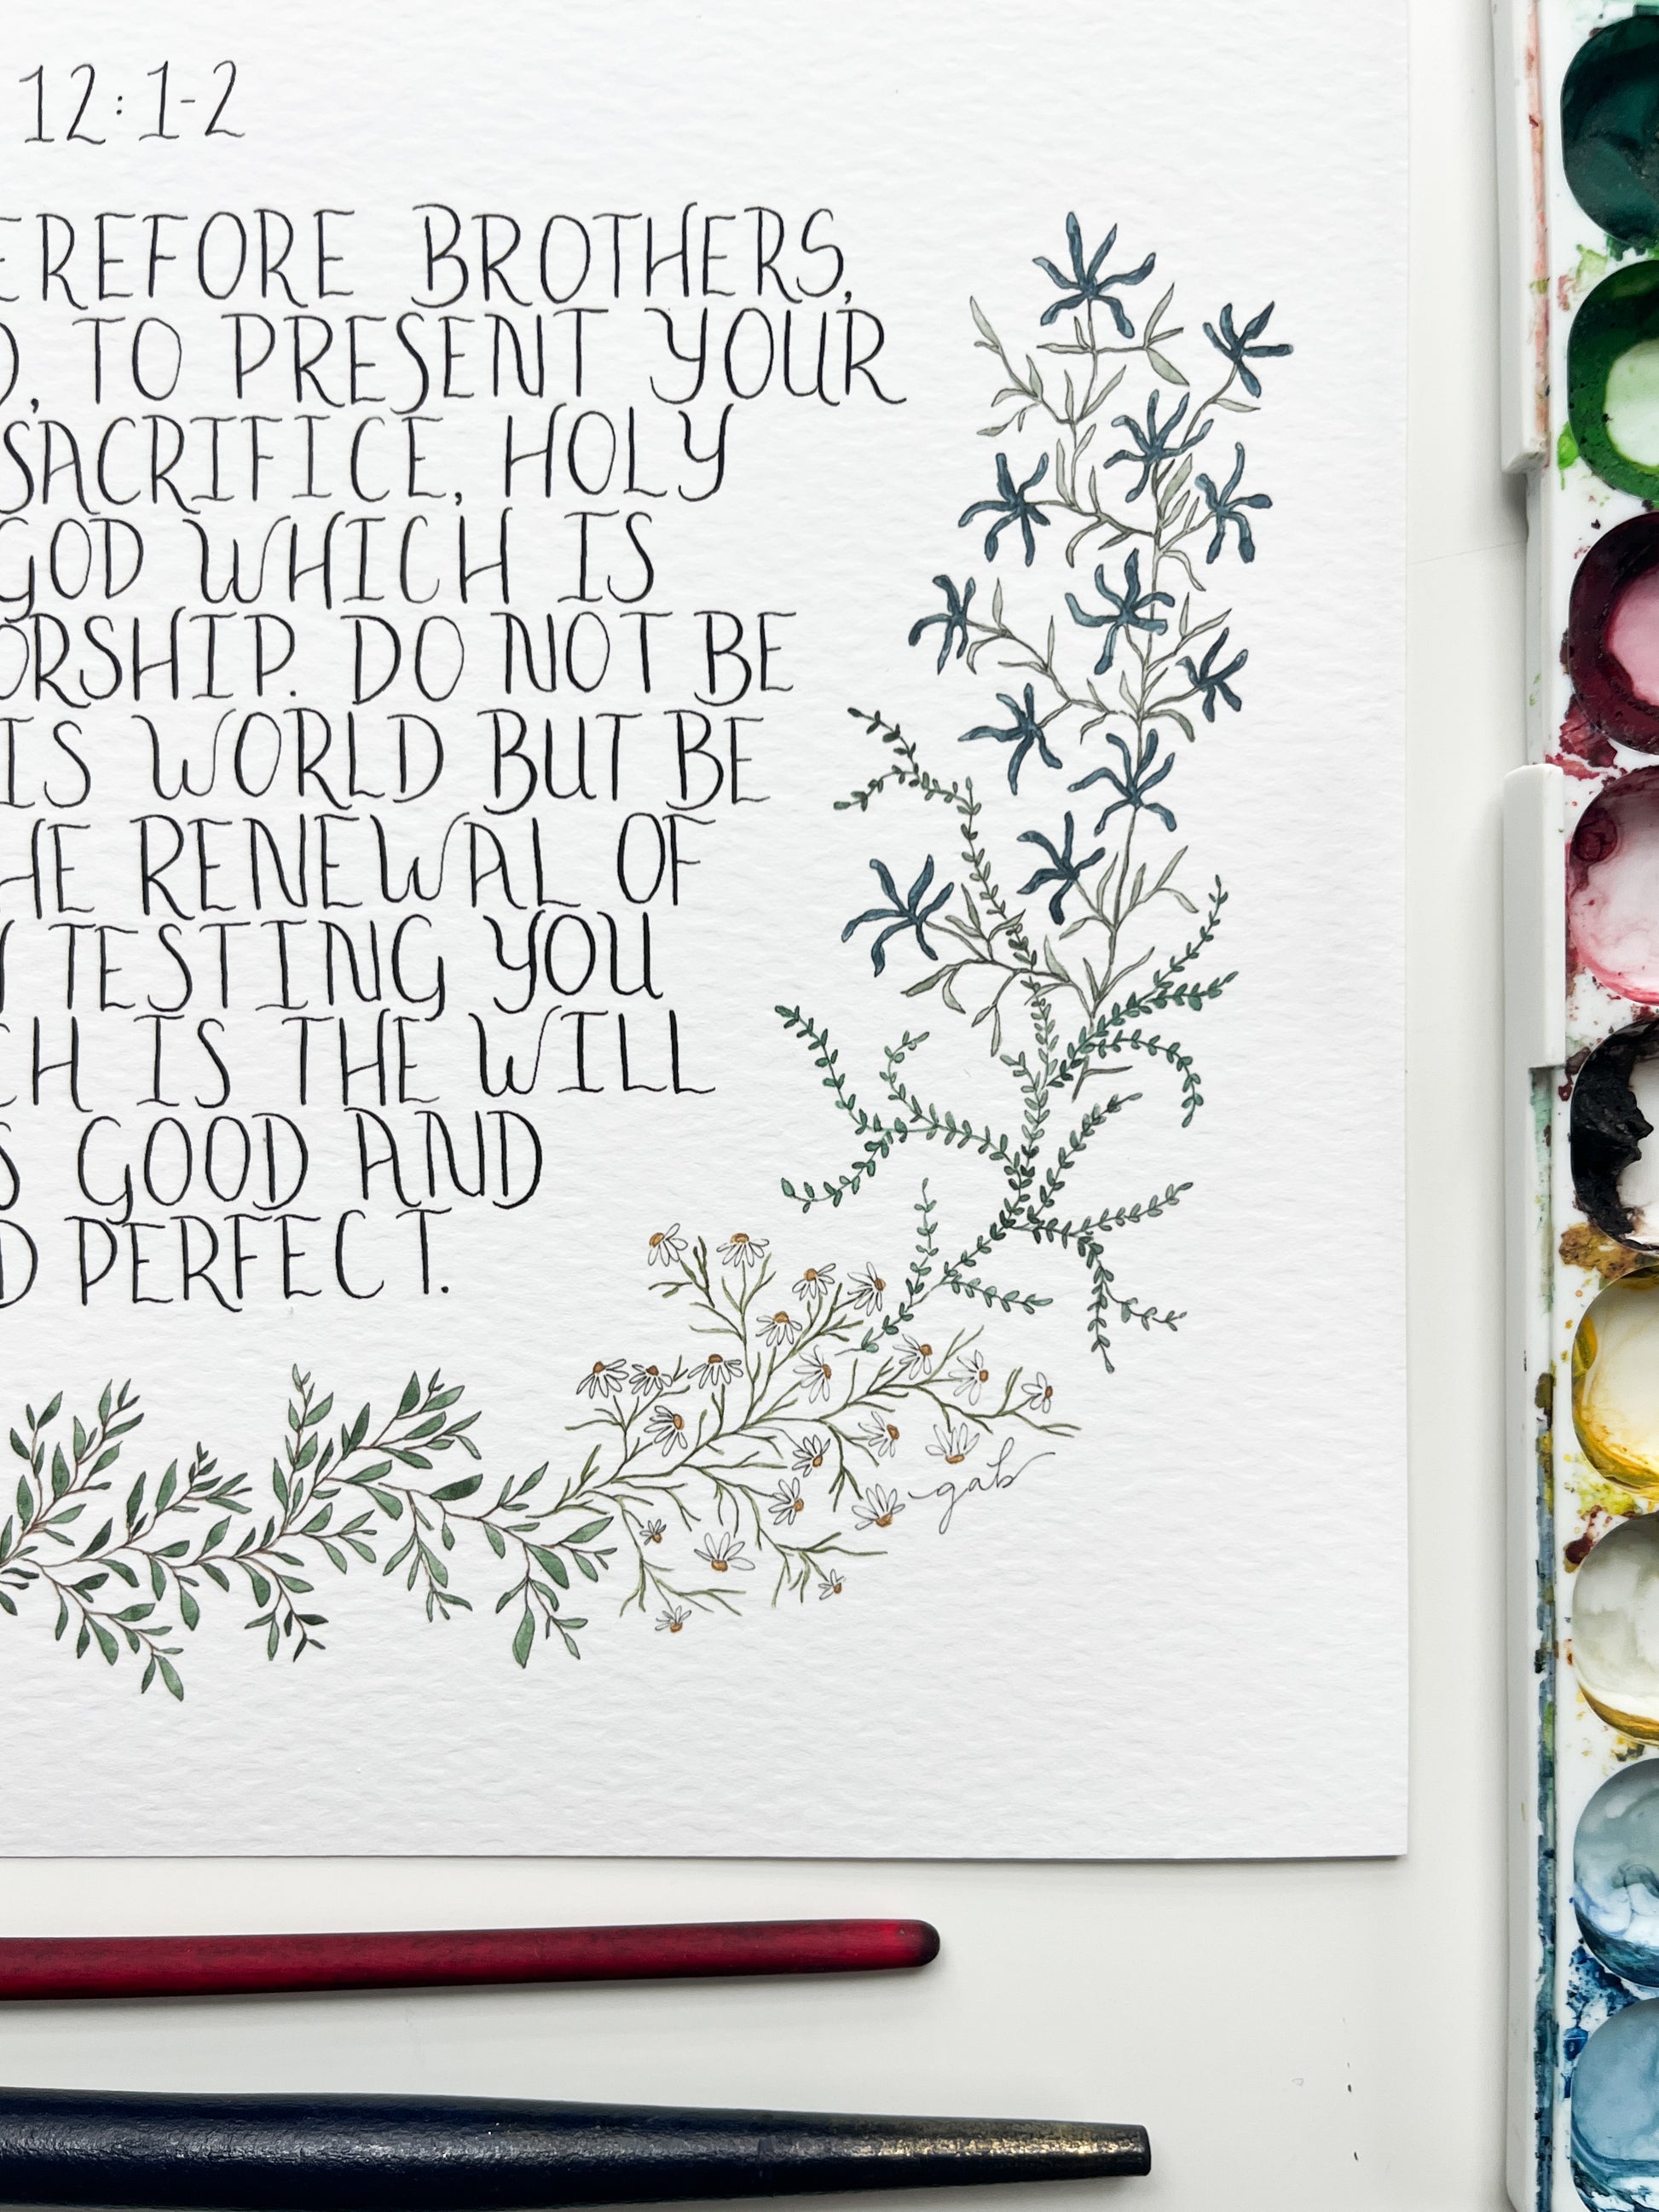 12:1-2
EREFORE BROTHERS,
D, TO PRESENT YOUR
SACRIFICE, HOLY
GOD WHICH IS
ORSHIP. DO NOT BE
IS WORLD BUT BE
HE RENEWAL OF
TESTING YOU
CH IS THE WILL
S GOOD AND
D PERFECT.
gab